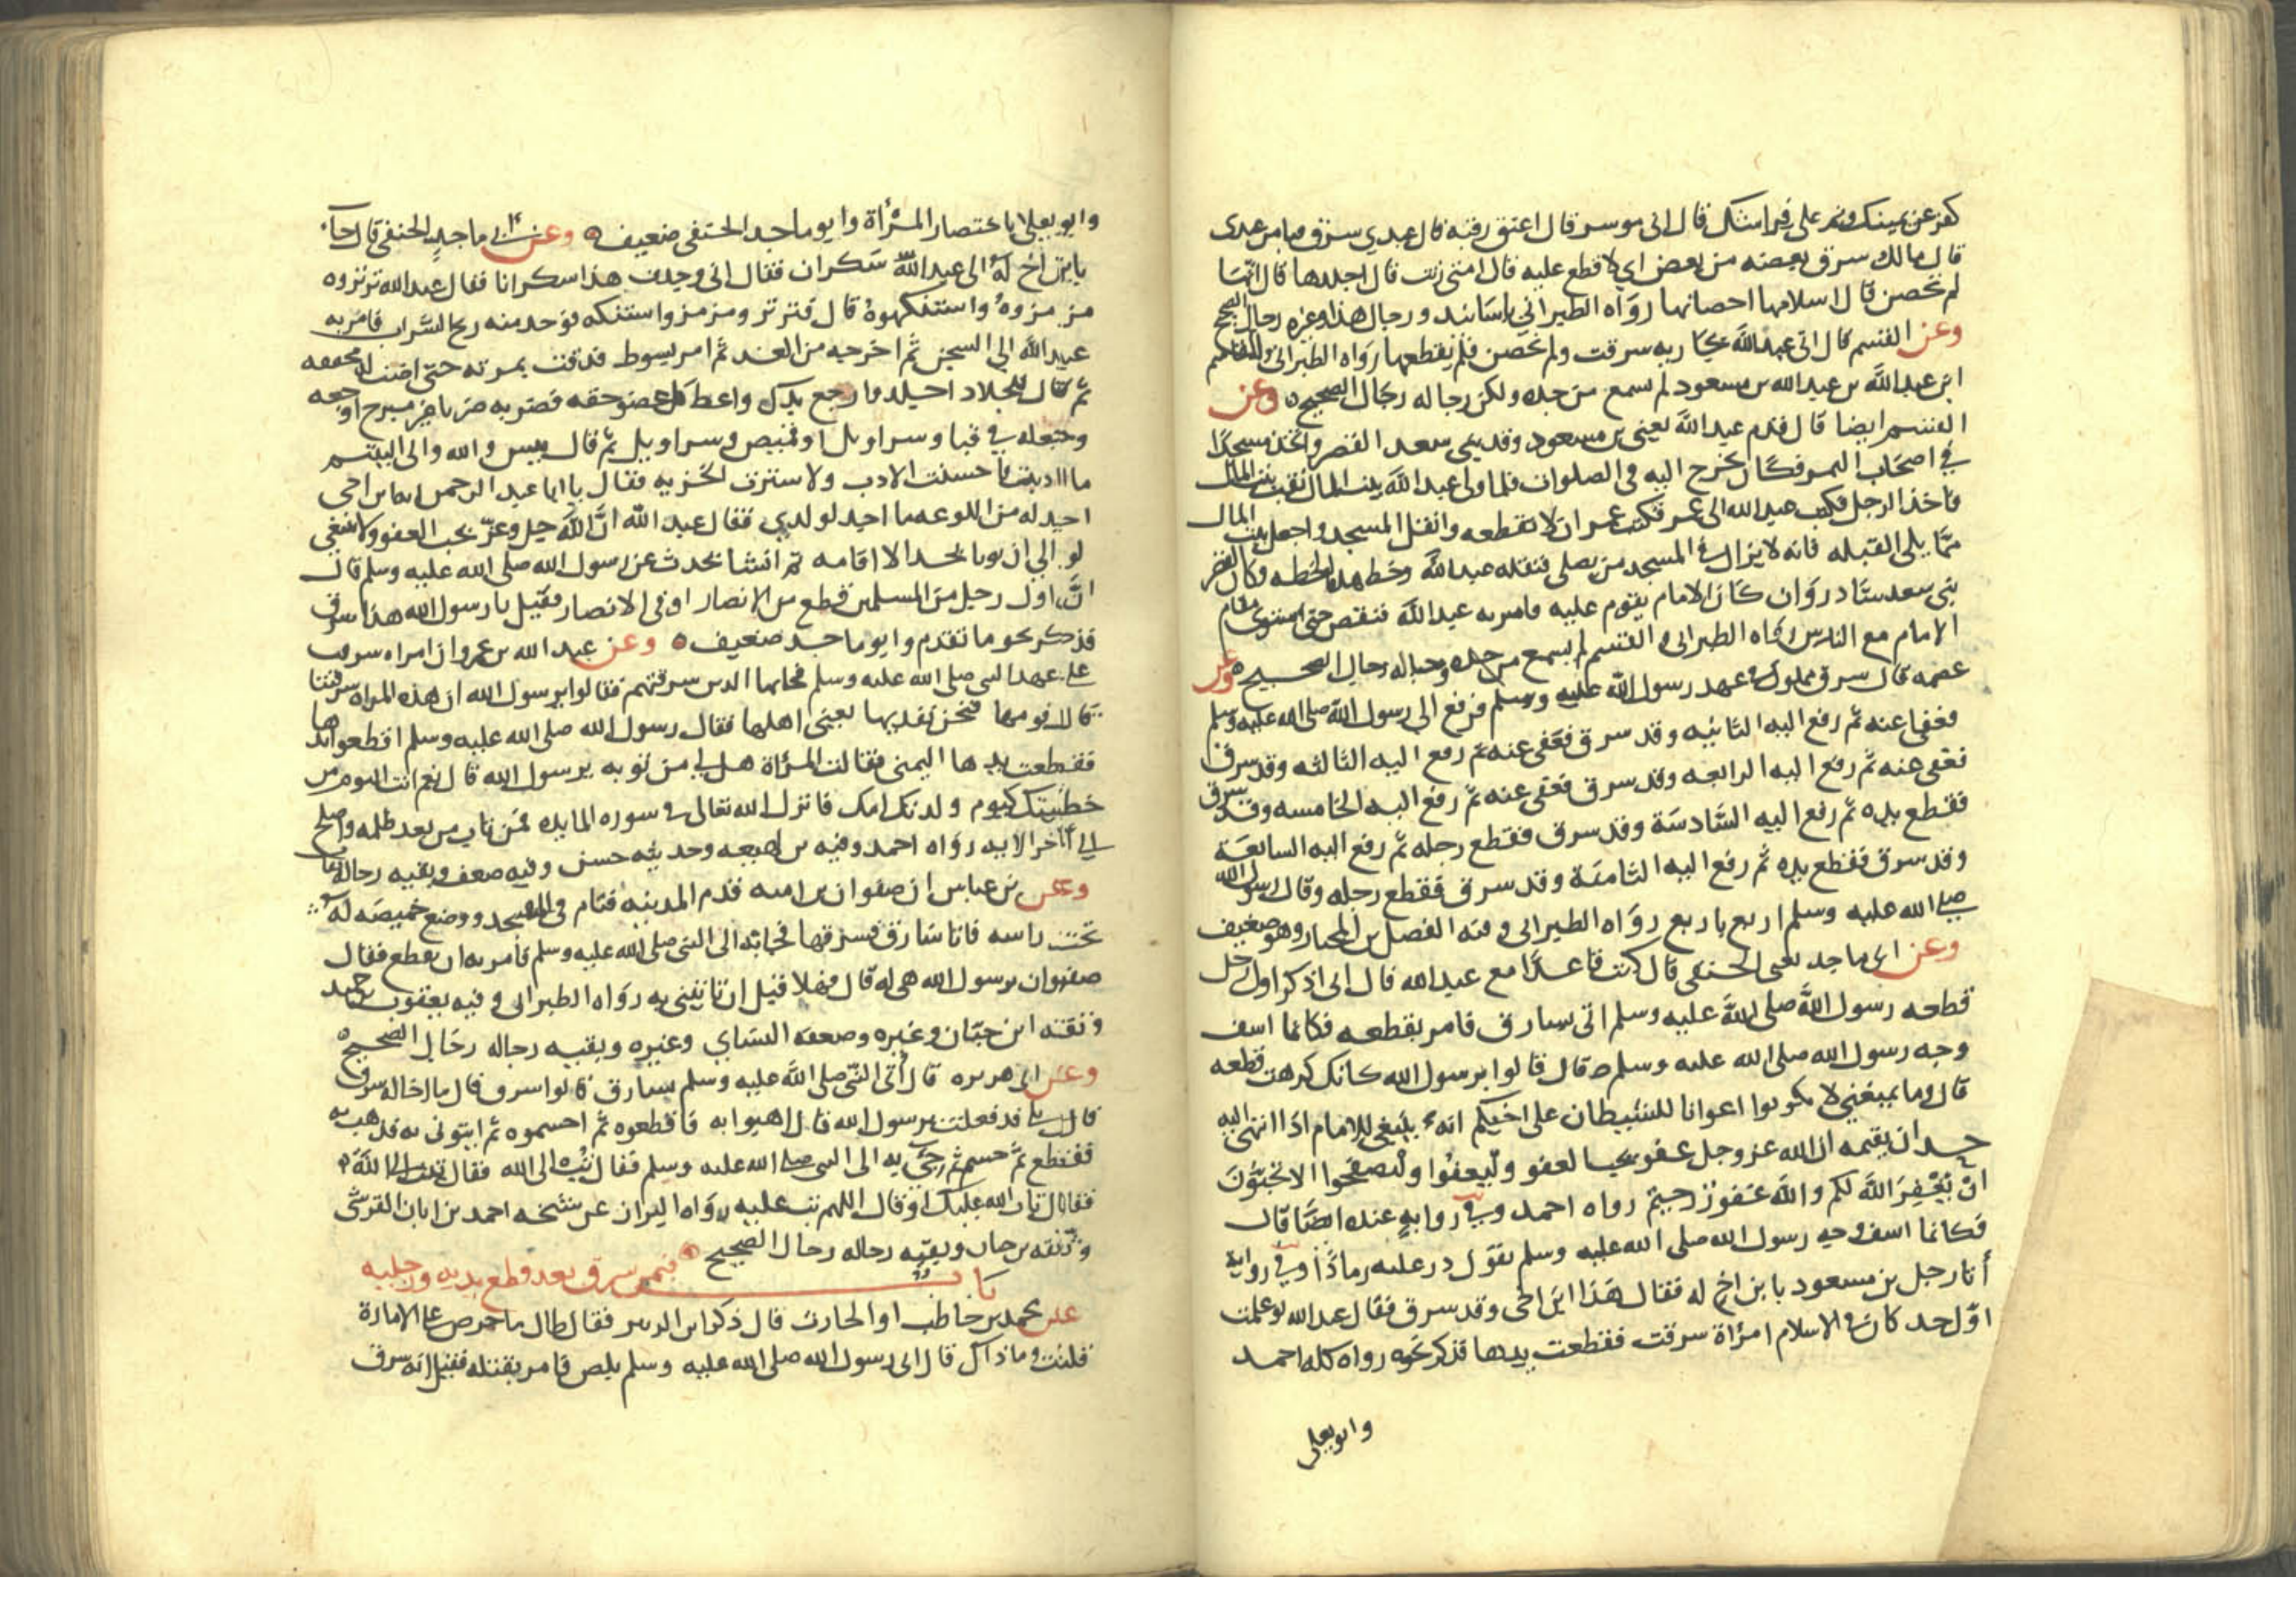 كفر عن يمينك ونم على فراشك قال انى موسر قال اعتق رقبة قال عبدي سرق قبا من عبدى
قال مالك سرق بعضه من بعض اي لا قطع عليه قال امتى زنت قال اجلدها قال انها
لم تحصن قال اسلامها احصانها رواه الطبراني باسانيد ورجال هذا وغيره رجال الصحيح
وعن القسم قال اتى عبد الله بجاريه سرقت ولم تحصن فلم يقطعها رواه الطبرانى والقاسم
ابن عبد الله بن عبد الله بن مسعود لم يسمع من جده ولكن رجاله رجال الصحيح وعن
القسم ايضا قال قدم عبد الله يعنى بن مسعود وقد بنى سعد القصر واتخذ مسجدا
في اصحاب التمر فكان يخرج اليه فى الصلوات فلما ولى عبد الله بيت المال نقب بيت المال
فاخذ الرجل فكتب عبد الله الى عمر فكتب عمر ان لا تقطعه وانقل المسجد واجعل بيت المال
مما يلى القبله فانه لا يزال فى المسجد من يصلى فنقله عبد الله وخط هذه الخطه وكان القصر
بنى سعد شاذروان كان الامام يقوم عليه فامر به عبد الله فنقص حتى استوى مقام
الامام مع الناس رواه الطبرانى والقسم لم يسمع من جده ورجاله رجال الصحيح وعن
عصمه قال سرق مملوك فى عهد رسول الله صلى الله عليه وسلم فرفع الى رسول الله صلى الله عليه وسلم
فعفى عنه ثم رفع اليه الثانيه وقد سرق فعفى عنه ثم رفع اليه الثالثه وقد سرق
فعفى عنه ثم رفع اليه الرابعه وقد سرق فعفى عنه ثم رفع اليه الخامسه وقد سرق
فقطع يده ثم رفع اليه السادسة وقد سرق فقطع رجله ثم رفع اليه السابعة
وقد سرق فقطع يده ثم رفع اليه الثامنة وقد سرق فقطع رجله وقال رسول الله
صلى الله عليه وسلم اربع باربع رواه الطبرانى وفيه الفضل بن المختار وهو ضعيف
وعن ابى ماجد يعنى الحنفى قال كنت قاعدا مع عبد الله قال انى اذكر اول رجل
قطعه رسول الله صلى الله عليه وسلم اتى بسارق فامر بقطعه فكانما اسف
وجه رسول الله صلى الله عليه وسلم قال قالوا يرسول الله كانك كرهت قطعه
قال وما يمنعني لا تكونوا اعوانا للشيطان على اخيكم انه ينبغى للامام اذا انتهى اليه
حد ان يقيمه ان الله عز وجل عفو يحب العفو وليعفوا وليصفحوا الا تحبون
ان يغفر الله لكم والله غفور رحيم رواه احمد وفي رواية عنده ايضا قال
فكانما اسف وجه رسول الله صلى الله عليه وسلم يقول در عليه رمادا وفي رواية
أتا رجل بن مسعود بابن اخ له فقال هذا ابن اخى وقد سرق فقال عبد الله لو علمت
اول حد كان فى الاسلام امرأة سرقت فقطعت يدها فذكر نحوه رواه كله احمد
وابو يعلى
وابو يعلى باختصار المرأة وابو ماجد الحنفى ضعيف وعن ابى ماجد الحنفى قال جاء
بابن اخ له الى عبد الله سكران فقال انى وجدت هذا سكرانا فقال عبد الله ترتروه
مزمزوه واستنكهوه قال فترتر ومزمز واستنكه فوجد منه ريح الشراب فامر به
عبد الله الى السجن ثم اخرجه من الغد ثم امر بسوط فدقت بمرته حتى اضت له محففه
ثم قال للجلاد اجلد وارجع يدك واعط كل عضو حقه فضربه ضربا غير مبرح اوجعه
وجعله في قبا وسراويل او قميص وسراويل ثم قال بيس والله والى اليتيم
ما ادبت فاحسنت الادب ولا سترت الخزيه فقال يا ابا عبد الرحمن انه ابن اخى
اجد له من اللوعه ما اجد لولدي فقال عبد الله ان الله جل وعز يحب العفو ولا ينبغي
لوالي ان يوتا بحد الا اقامه ثم انشا يحدث عن رسول الله صلى الله عليه وسلم قال
ان اول رجل من المسلمين قطع من الانصار او فى الانصار فقيل يا رسول الله هذا سرق
فذكر نحو ما تقدم وابو ماجد ضعيف وعن عبد الله بن عمرو ان امراه سرقت
على عهد النبى صلى الله عليه وسلم فجا بها الذين سرقتهم فقالوا يرسول الله ان هذه المراه سرقتنا
قال قومها فنحن نفديها يعنى اهلها فقال رسول الله صلى الله عليه وسلم اقطعوا يدها
فقطعت يدها اليمنى فقالت المرأة هل لى من توبه يرسول الله قال نعم انت اليوم من
خطيتك كيوم ولدتك امك فانزل الله تعالى فى سوره المايده فمن تاب من بعد ظلمه واصلح
الى آخر الايه رواه احمد وفيه بن لهيعه وحديثه حسن وفيه ضعف وبقيه رجاله ثقات
وعن بن عباس ان صفوان بن اميه قدم المدينه فنام فى المسجد ووضع خميصه له
تحت راسه فاتا سارق فسرقها فجا به الى النبى صلى الله عليه وسلم فامر به ان يقطع فقال
صفوان يرسول الله هى له قال فهلا قبل ان تاتينى به رواه الطبرانى وفيه يعقوب بن حميد
وثقه ابن حبان وغيره وضعفه النساي وغيره وبقيه رجاله رجال الصحيح
وعن ابى هريره قال أتى النبى صلى الله عليه وسلم بسارق قالوا سرق قال ما اخاله سرق
قال بلى قد فعلت يرسول الله قال اذهبوا به فاقطعوه ثم احسموه ثم ايتونى به فذهب به
فقطع ثم حسم ثم جئ به الى النبى صلى الله عليه وسلم فقال تب الى الله فقال تبت الى الله
فقال تاب الله عليك او قال اللهم تب عليه رواه البزار عن شيخه احمد بن ابان القرشى
وثقه بن حبان وبقيه رجاله رجال الصحيح
باب فيمن سرق بعد قطع يديه ورجليه
عن محمد بن حاطب او الحارث قال ذكر ابن الزبير فقال طال ما حرص على الامارة
قلت وما ذاك قال اتى رسول الله صلى الله عليه وسلم بلص فامر بقتله فقيل انه سرق